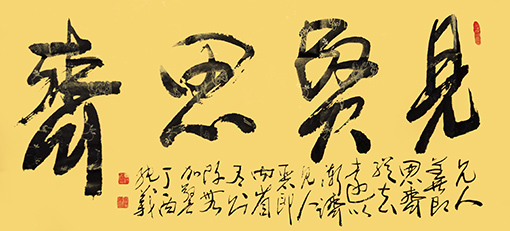 見賢思齊
見人
善即
思齊
縱去
遠以
漸躋
見人
惡即
内省
有則
改無
加警
丁酉